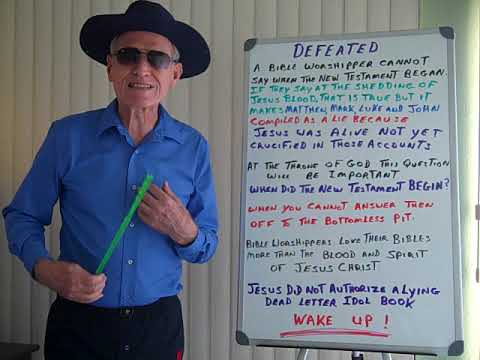 DEFEATED
A BIBLE WORSHIPPER CANNOT
SAY WHEN THE NEW TESTAMENT BEGAN.
IF THEY SAY AT THE SHEDDING OF
JESUS BLOOD, THAT IS TRUE BUT IT
MAKES MATTHEW, MARK, LUKE AND JOHN
COMPILED AS A LIE BECAUSE
JESUS WAS ALIVE NOT YET
CRUCIFIED IN THOSE ACCOUNTS
AT THE THRONE OF GOD THIS QUESTION
WILL BE IMPORTANT
WHEN DID THE NEW TESTAMENT BEGIN?
WHEN YOU CANNOT ANSWER THEN
OFF TO THE BOTTOMLESS PIT.
BIBLE WORSHIPPERS LOVE THEIR BIBLES
MORE THAN THE BLOOD AND SPIRIT
OF JESUS CHRIST
JESUS DID NOT AUTHORIZE A LYING
DEAD LETTER IDOL BOOK
WAKE UP!